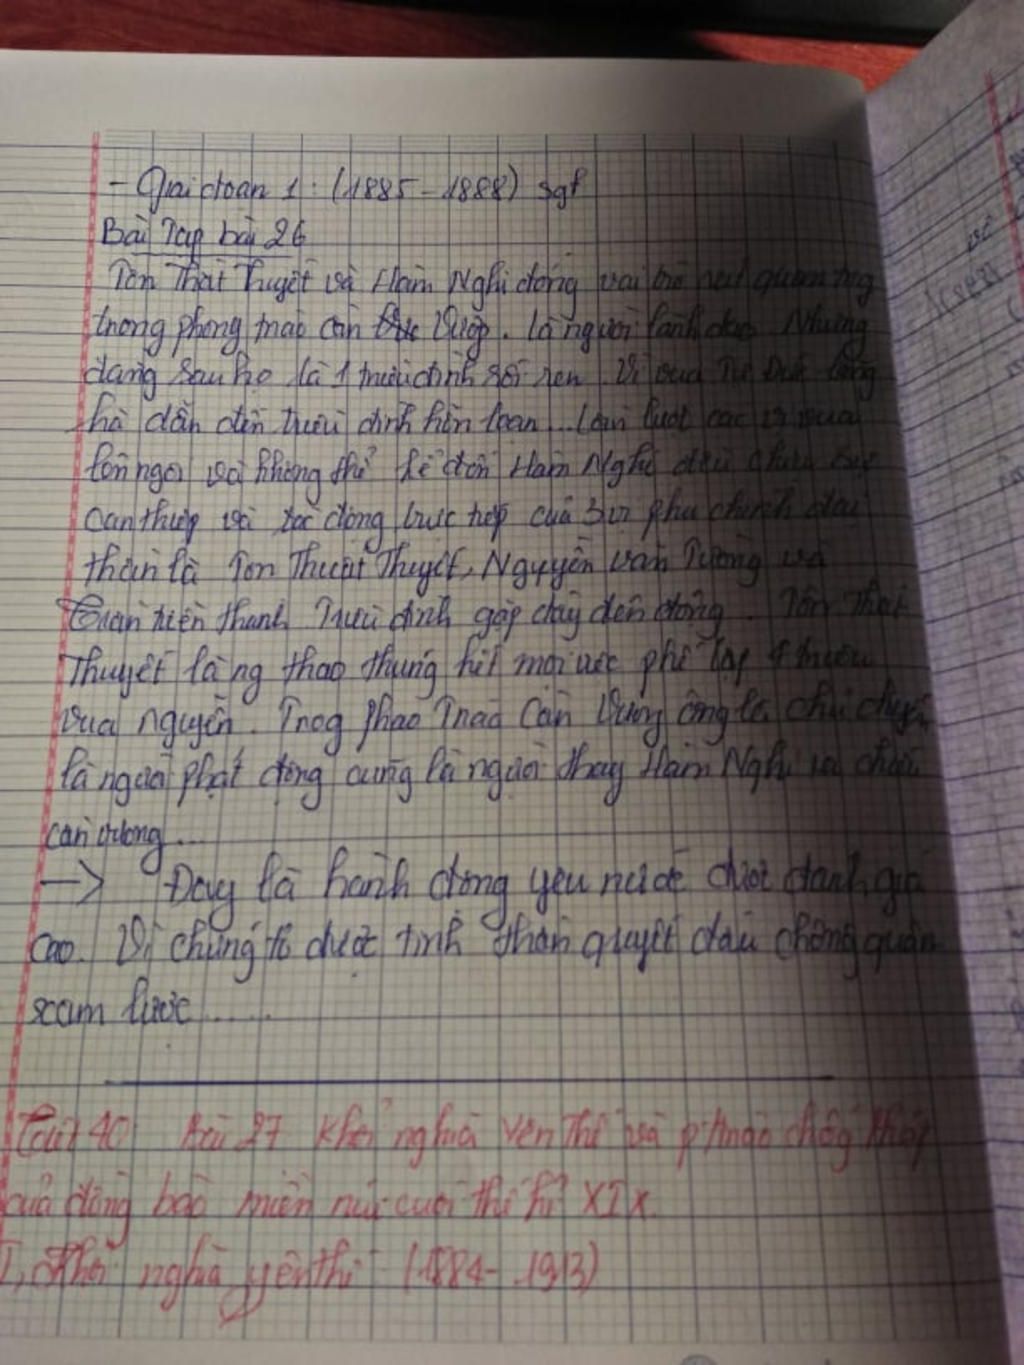 - Giai đoan 1: (1885 - 1888) sgk
Bài Tập bài 26
Tôn Thất Thuyết và Hàm Nghi đóng vai trò quan
trong phong trào Cần Vương. Là người lãnh đạo Nhưng
đang sau họ là 1 triều đình Vì vua Tự Đức băng
hà dẫn đến triều đình hỗn loạn... Lần lượt các vị vua
lên ngôi và không thể kể đến Hàm Nghi đều chịu sự
can thiệp và tác động trực tiếp của 3 vị phụ chính đại
thần là Tôn Thuất Thuyết, Nguyễn Văn Tường và
Trần tiễn thành Triều đình gặp Tôn Thất
Thuyết là ng thao thúng hết mọi việc phế lập 4 triều
vua nguyễn. Trog phao Trào Cần Vương ông là chủ
là người phát động cũng là người thay Hàm Nghi ra chiếu
cần vương...
→ Đây là hành động yêu nước được đánh giá
cao. Vì chứng tỏ được tinh thần quyết đấu chống quân
xâm lược.....
Tiết 40 Bài 27 Khởi nghĩa Yên Thế và p/trào chống Pháp
của đồng bào miền núi cuối thế kỉ XIX.
I, Khởi nghĩa yên thế (1884 - 1913)